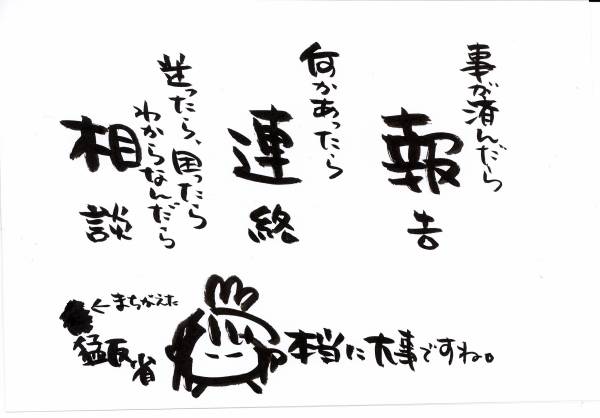 事が済んだら
報告
何かあったら
連絡
迷ったら、困ったら
わからなんだら
相談
←まちがえた
猛反省
本当に大事ですね。